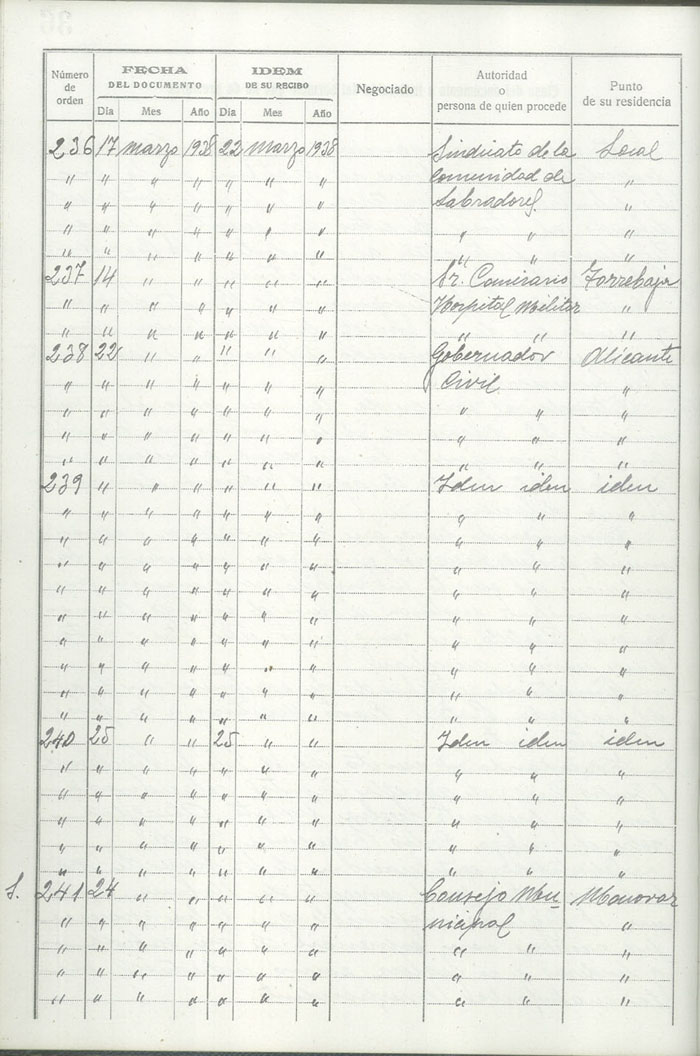 Número de orden | FECHA DEL DOCUMENTO | IDEM DE SU RECIBO | Negociado | Autoridad o persona de quien procede | Punto de su residencia
Día | Mes | Año | Día | Mes | Año
236 17 Marzo 1938 22 Marzo 1938 Sindicato de la Local
" " " " " " " Comunidad de "
" " " " " " " Labradores. "
" " " " " " " " " "
" " " " " " " " " "
237 14 " " " " " Sr. Comisario Torrebaja
" " " " " " " Hospital Militar "
" " " " " " " " " "
238 22 " " " " " Gobernador Alicante
" " " " " " " Civil "
" " " " " " " " " "
" " " " " " " " " "
" " " " " " " " " "
239 " " " " " " Iden iden iden
" " " " " " " " " "
" " " " " " " " " "
" " " " " " " " " "
" " " " " " " " " "
" " " " " " " " " "
" " " " " " " " " "
" " " " " " " " " "
" " " " " " " " " "
" " " " " " " " " "
240 25 " " 25 " " Iden iden iden
" " " " " " " " " "
" " " " " " " " " "
" " " " " " " " " "
" " " " " " " " " "
" " " " " " " " " "
S. 241 24 " " " " " Consejo Mu- Monovar
" " " " " " " nicipal "
" " " " " " " " " "
" " " " " " " " " "
" " " " " " " " " "